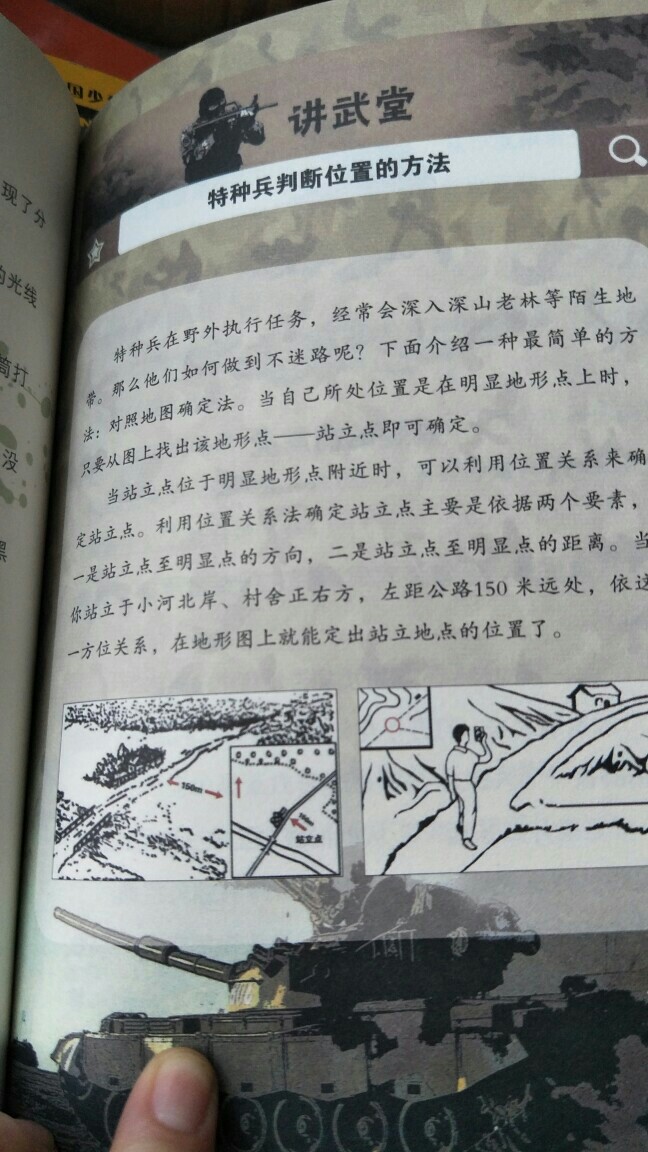 国少
讲武堂
特种兵判断位置的方法
现了分
的光线
筒打
没
特种兵在野外执行任务，经常会深入深山老林等陌生地
带。那么他们如何做到不迷路呢？下面介绍一种最简单的方
法：对照地图确定法。当自己所处位置是在明显地形点上时，
只要从图上找出该地形点——站立点即可确定。
当站立点位于明显地形点附近时，可以利用位置关系来确
定站立点。利用位置关系法确定站立点主要是依据两个要素，
一是站立点至明显点的方向，二是站立点至明显点的距离。当
你站立于小河北岸、村舍正右方，左距公路150 米远处，依这
一方位关系，在地形图上就能定出站立地点的位置了。
150m
站立点